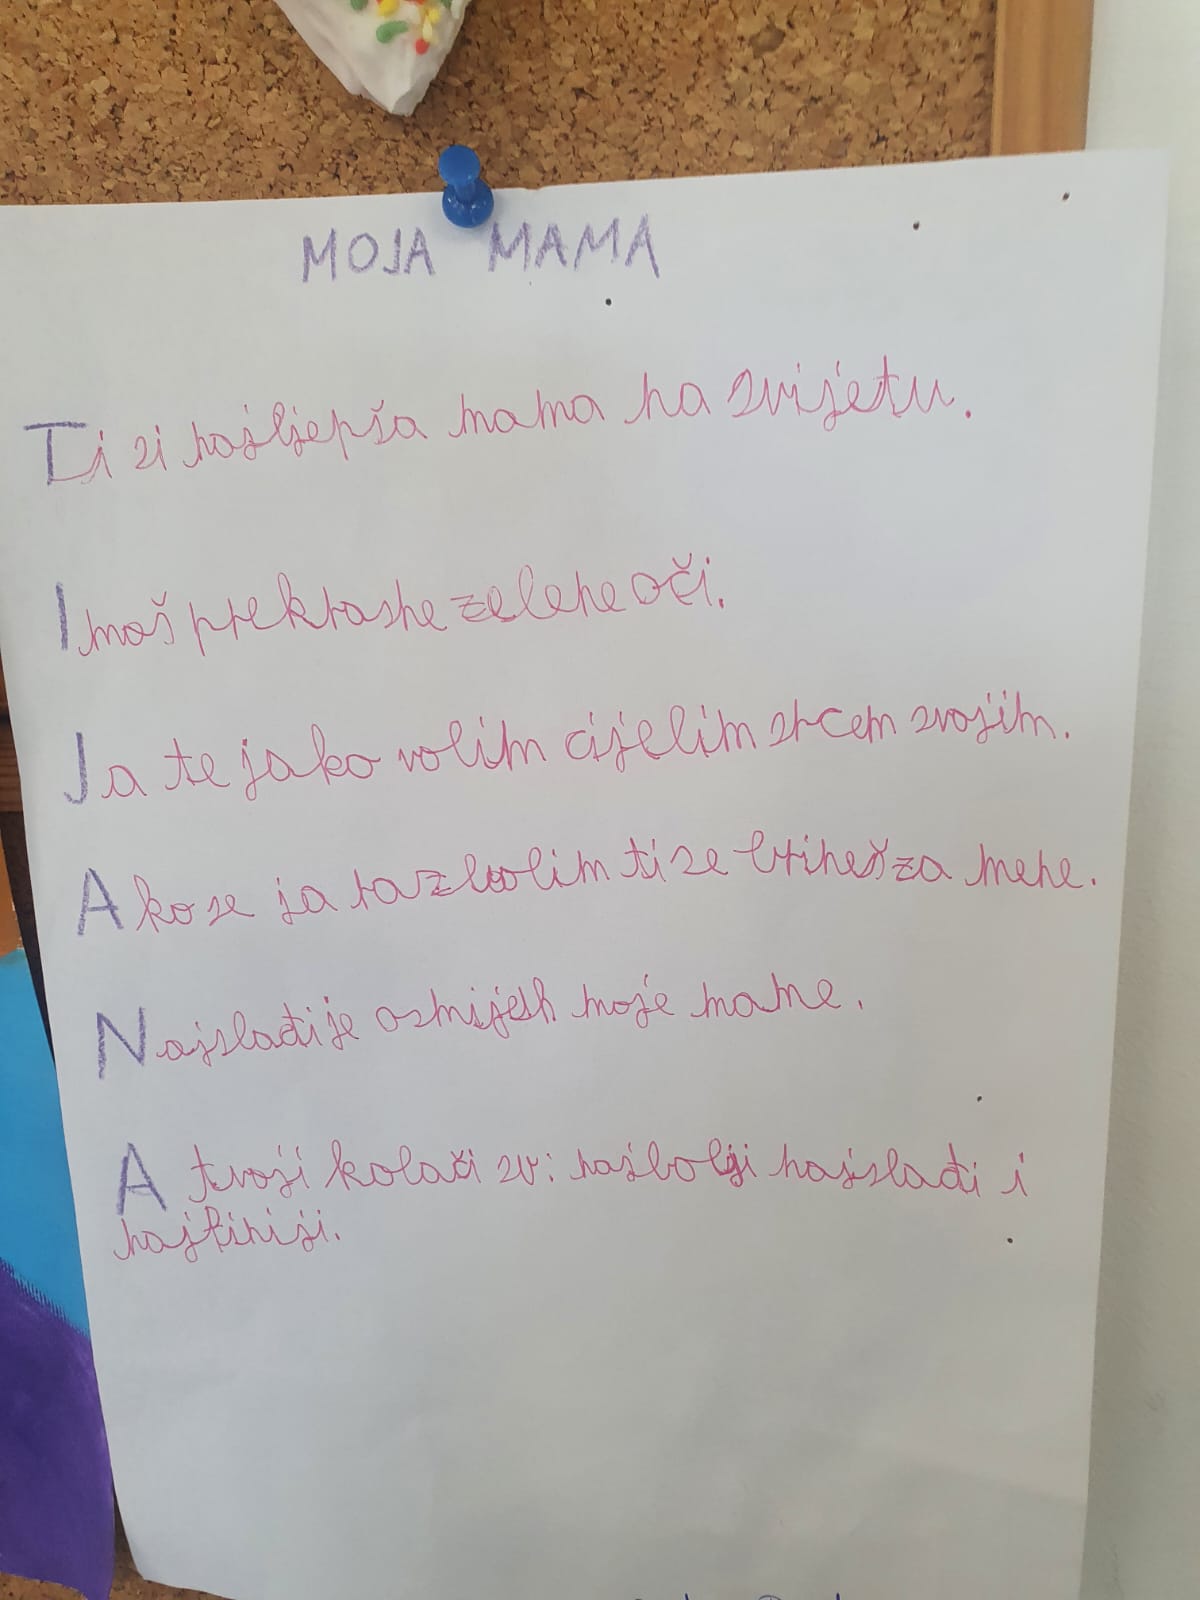 MOJA MAMA
Ti si najljepša mama na svijetu.
Imaš prekrasne zelene oči.
Ja te jako volim cijelim srcem svojim.
Ako se ja razbolim ti se brineš za mene.
Najslađi je osmijeh moje mame.
A tvoji kolači svi najbolji najslađi i
najfiniji.